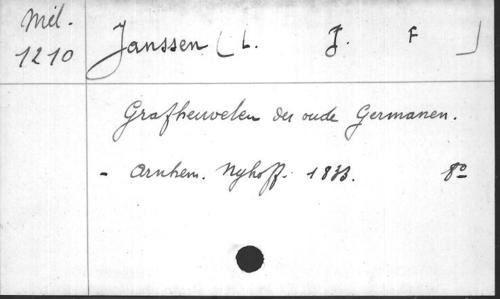 Mél.
1210
Janssen [L. J. F]
Grafheuvelen der oude Germanen.
- Arnhem. Nyhoff. 1833. 8º